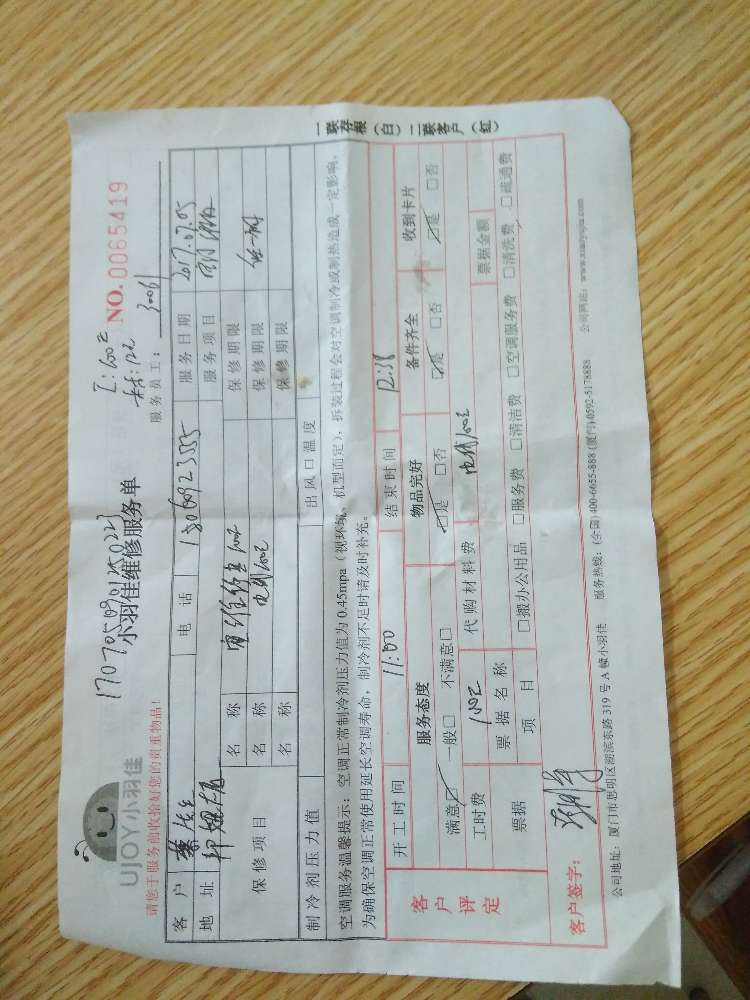 UJOY小羽佳
170705090125023
小羽佳维修服务单
NO. 0065419
请您于服务前收拾好您的贵重物品！
服务员工：
客户 电话 18060923555 服务日期 2017.07.05
地址 服务项目
保修项目 名称 保修期限
名称 保修期限
名称 保修期限
制冷剂压力值 出风口温度
空调服务温馨提示：空调正常制冷剂压力值为 0.45mpa（视环境、机型而定），拆装过程会对空调制冷或制热造成一定影响，
为确保空调正常使用延长空调寿命，制冷剂不足时请及时补充。
开工时间 11:00 结束时间 12:38
客户评定 服务态度 物品完好 备件齐全 收到卡片
满意☑ 一般□ 不满意□ ☑是 □否 ☑是 □否 ☑是 □否
工时费 代购材料费
票据 票据名称 票据金额
项目 □搬办公用品 □服务费 □清洁费 □空调服务费 □清洗费 □疏通费
客户签字：
公司地址：厦门市思明区湖滨东路 319 号 A 幢小羽佳 服务热线：(全国)400-6655-888 (厦门)0592-5178888 公司网站：www.xiaoyujia.com
一联存根（白）二联客户（红）